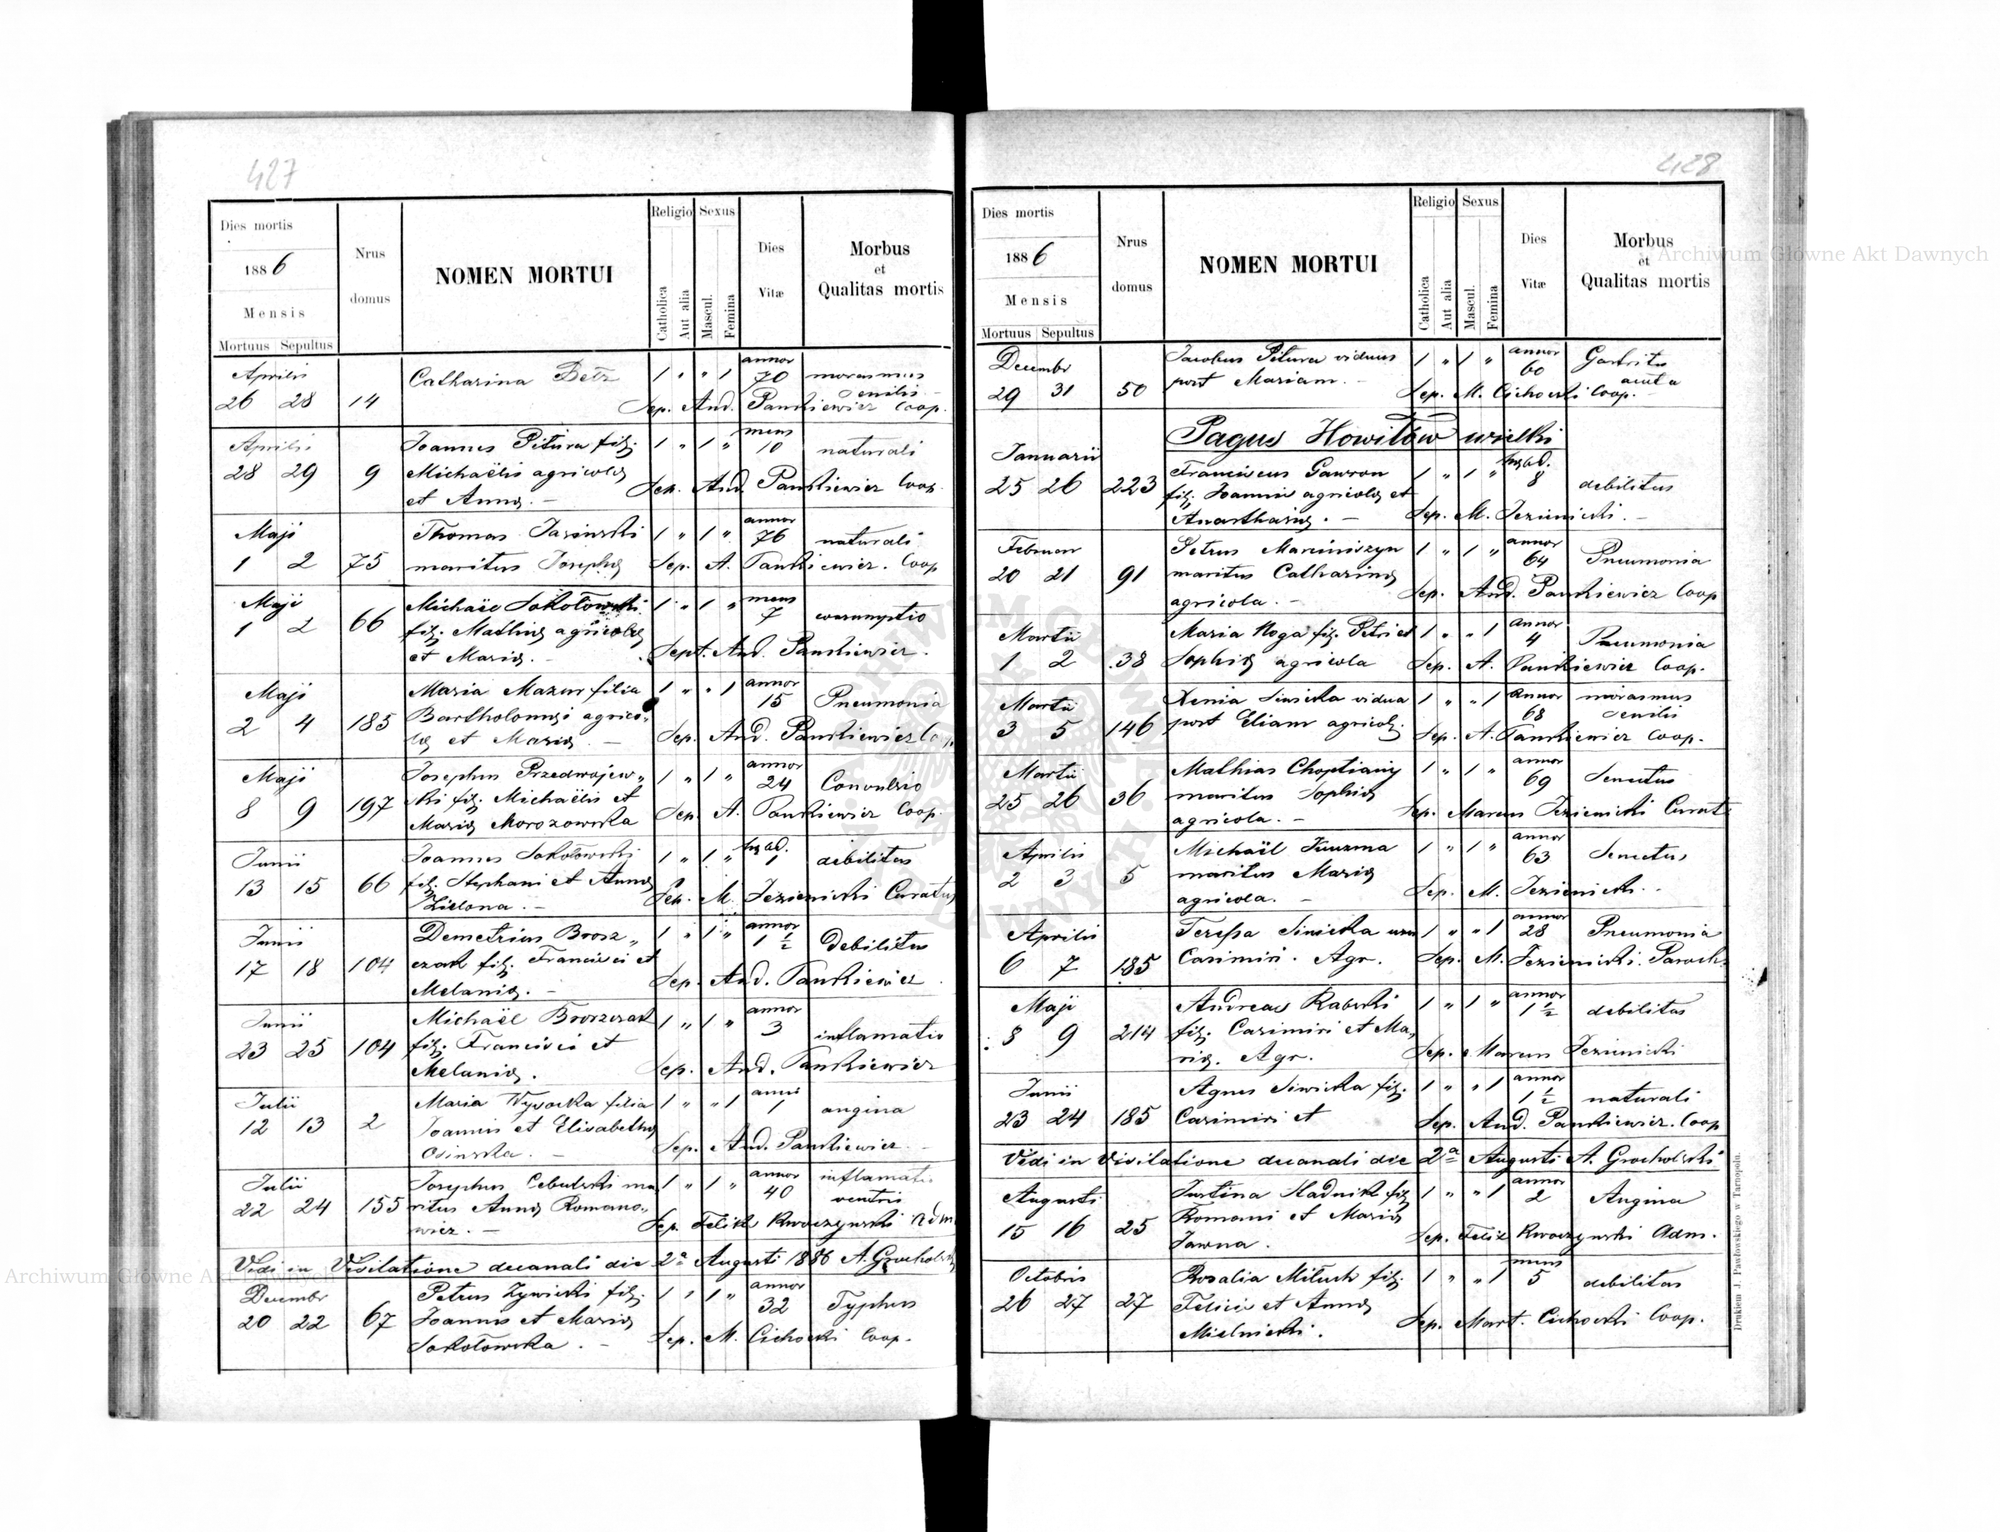 427
Dies mortis
1886
Mensis
Mortuus Sepultus
Nrus domus
NOMEN MORTUI
Religio
Catholica
Aut alia
Sexus
Mascul.
Femina
Dies Vitæ
Morbus
et
Qualitas mortis
Aprilis annor
26 28 14 Catharina Betz 1 " " 1 70 marasmus senilis
Sep. And. Pankiewicz Coop.
Aprilis Joannes Pitura fil. 1 " 1 " mens
28 29 9 Michaëlis agricolæ 10 naturali
et Annæ. — Sep. And. Pankiewicz Coop.
Maji Thomas Jasinski 1 " 1 " annor 76 naturali
1 2 75 maritus Josephæ Sep. A. Pankiewicz. Coop
Maji Michäel Sokołowski 1 " 1 " mens 7 consumptio
1 2 66 fil. Mathiæ agricolæ
et Mariæ. — Sept. And. Pankiewicz.
Maji Maria Mazur filia 1 " " 1 annor 15 Pneumonia
2 4 185 Bartholomæi agrico-
læ et Mariæ. — Sep. And. Pankiewicz Coop
Maji Josephus Przedwojew„ 1 " 1 " annor 24 Convulsio
8 9 197 ski fil. Michaëlis et
Mariæ Morozowska Sep. A. Pankiewicz Coop.
Junii Joannes Sokołowski 1 " 1 " 1 debilitas
13 15 66 fil. Stephani et Annæ
Zielona. — Sep. M. Jezienicki Curatus
Junii Demetrius Brosz„ 1 " 1 " annor 1 ½ debilitas
17 18 104 czak fil. Francisci et
Melaniæ. — Sep. And. Pankiewicz
Junii Michaël Broszczak 1 " 1 " annor 3 inflamatio
23 25 104 fil. Francisci et
Melaniæ. Sep. And. Pankiewicz
Julii Maria Wysocka filia 1 " " 1 anni 1 angina
12 13 2 Joannis et Elisabethæ
Osinska. — Sep. And. Pankiewicz
Julii Josephus Cebulski ma 1 " 1 " annor 40 inflamatio ventris
22 24 155 ritus Annæ Romano„
wicz. — Sep. Felix Kwoczynski Adm
Vidi in Visitatione decanali die 2ª Augusti 1886 A. Grocholski
Decembr Petrus Zywicki fil. 1 " 1 " annor 32 Typhus
20 22 67 Joannis et Mariæ
Sokołowska. — Sep. M. Cichocki Coop.
428
Dies mortis
1886
Mensis
Mortuus Sepultus
Nrus domus
NOMEN MORTUI
Religio
Catholica
Aut alia
Sexus
Mascul.
Femina
Dies Vitæ
Morbus
et
Qualitas mortis
Decembr Jacobus Pitura viduus 1 " 1 " annor 60 Gastritis acuta
29 31 50 post Mariam. — Sep. M. Cichocki Coop.
Pagus Howiłów wielki
Januarii Franciscus Gawron 1 " 1 " 8 debilitas
25 26 223 fil. Joannis agricolæ et
Anasthasiæ. — Sep. M. Jezienicki. —
Februar Petrus Marciniszyn 1 " 1 " annor 64 Pneumonia
20 21 91 maritus Catharinæ
agricola. — Sep. And. Pankiewicz Coop
Martii Maria Noga fil. Petri et 1 " " 1 annor 4 Pneumonia
1 2 38 Sophiæ agricola Sep. A. Pankiewicz Coop.
Martii Xenia Siwicka vidua 1 " " 1 annor 68 marasmus senilis
3 5 146 post Eliam agricol. Sep. A. Pankiewicz Coop.
Martii Mathias Choptiany 1 " 1 " annor 69 Senectus
25 26 36 maritus Sophiæ
agricola. — Sep. Marcus Jezienicki Curat
Aprilis Michaël Kuzma 1 " 1 " annor 63 Senectus
2 3 5 maritus Mariæ
agricola. — Sep. M. Jezienicki.
Aprilis Teressa Siwicka uxor 1 " " 1 annor 28 Pneumonia
6 7 185 Casimiri. Agr. Sep. M. Jezienicki. Paroch.
Maji Andreas Rabski 1 " 1 " annor 1 ½ debilitas
8 9 214 fil. Casimiri et Ma„
riæ. Agr. Sep. Marcus Jezienicki
Junii Agnes Siwicka fil. 1 " " 1 annor 1 ½ naturali
23 24 185 Casimiri et Sep. And. Pankiewicz. Coop
Vidi in Visitatione decanali die 2ª Augusti A. Grocholski
Augusti Justina Stadnik fil. 1 " " 1 annor 2 Angina
15 16 25 Romani et Mariæ
Jawna. Sep. Felix Kwoczynski Adm.
Octobris Rosalia Miluch fil. 1 " " 1 mens 5 debilitas
26 27 27 Felicis et Annæ
Mielnicki. Sep. Mart. Cichocki Coop.
Drukiem J. Pawłowskiego w Tarnopolu.
Archiwum Główne Akt Dawnych
Archiwum Główne Akt Dawnych
ARCHIWUM GŁÓWNE AKT DAWNYCH